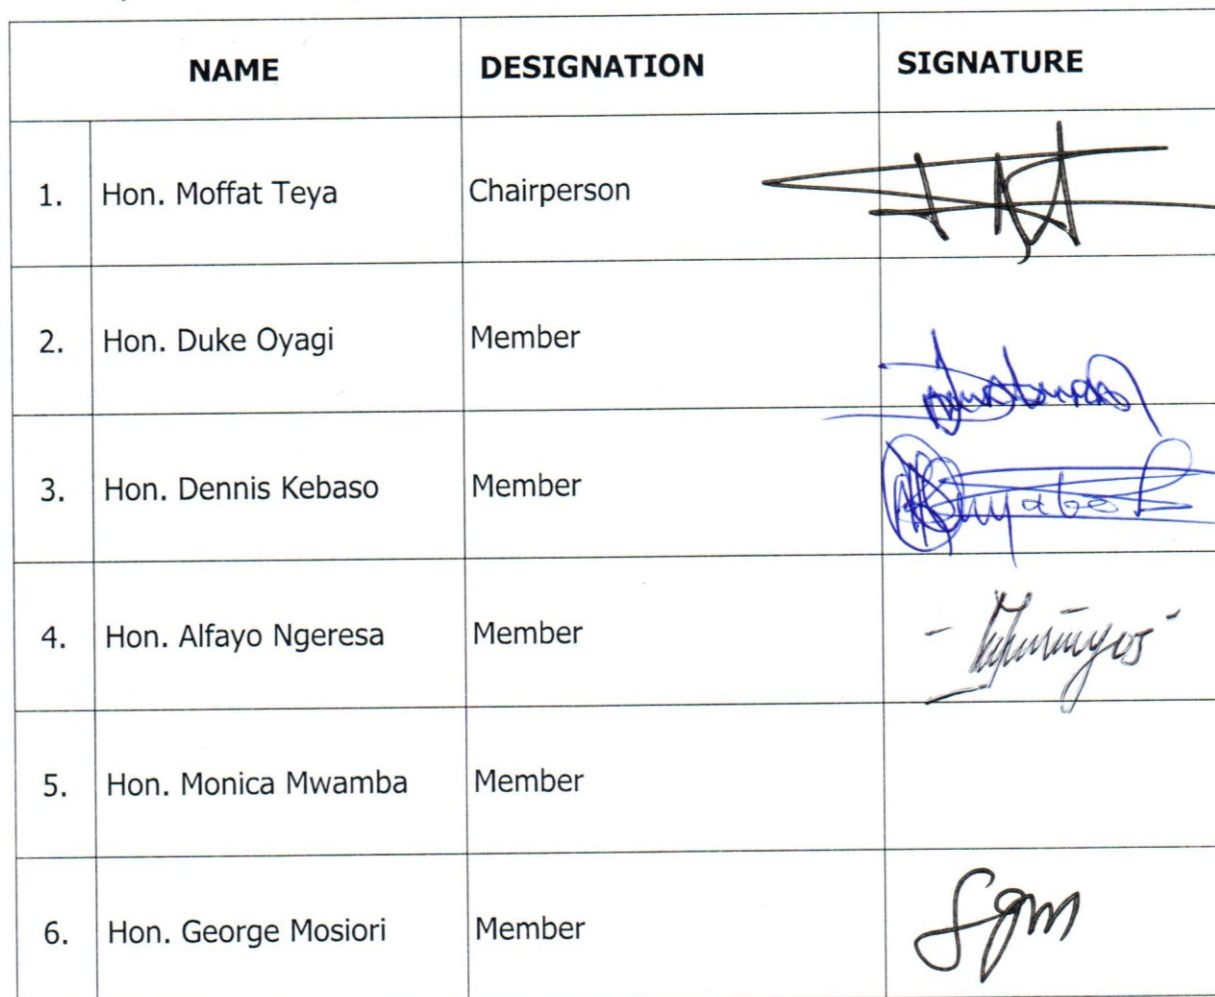 NAME DESIGNATION SIGNATURE
1. Hon. Moffat Teya Chairperson
2. Hon. Duke Oyagi Member
3. Hon. Dennis Kebaso Member
4. Hon. Alfayo Ngeresa Member
5. Hon. Monica Mwamba Member
6. Hon. George Mosiori Member